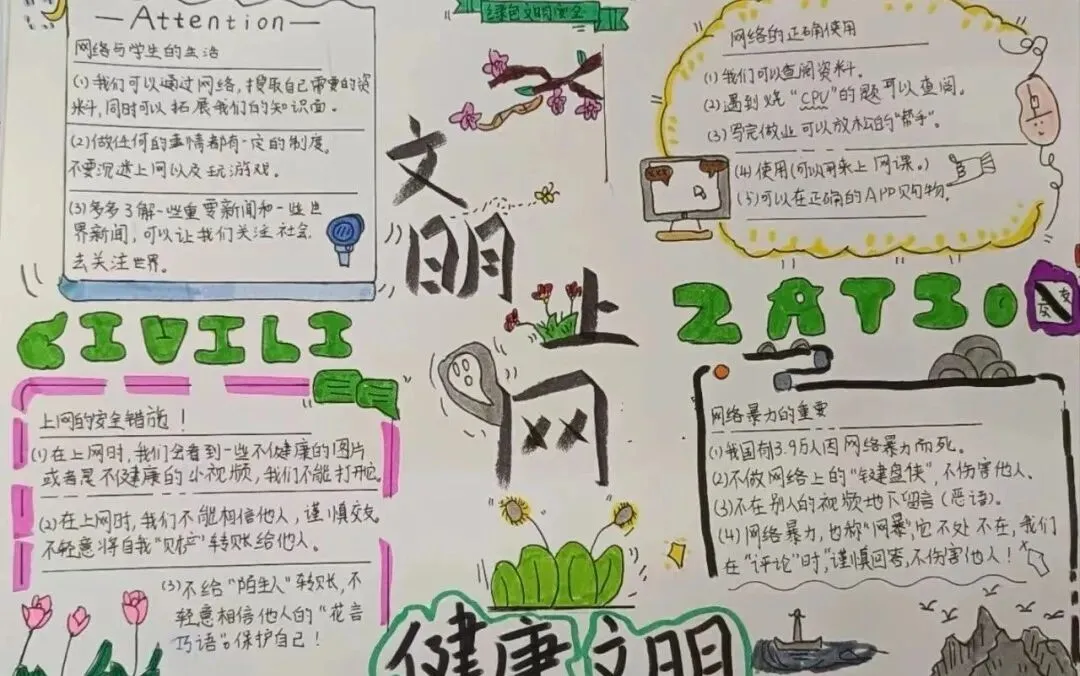 绿色文明安全
—Attention—
网络与学生的生活
(1)我们可以通过网络,提取自己需要的资
料,同时可以拓展我们的知识面。
(2)做任何的事情都有一定的制度。
不要沉迷上网以及玩游戏。
(3)多多了解一些重要新闻和一些世
界新闻,可以让我们关注社会,
去关注世界。
网络的正确使用
(1)我们可以查阅资料。
(2)遇到烧“CPU”的题可以查阅。
(3)写完做业可以放松的“帮手”。
(4)使用(可以用来上网课。)
(5)可以在正确的APP购物。
文
明
上
网
CIVILI
ZATIO
上网的安全错施!
(1)在上网时,我们会看到一些不健康的图片
或者是不健康的小视频,我们不能打开它。
(2)在上网时,我们不能相信他人,谨慎交友。
不轻意将自我“财产”转账给他人。
(3)不给“陌生人”转账,不
轻意相信他人的“花言
巧语”。保护自己!
网络暴力的重要
(1)我国有3.9万人因网络暴力而死。
(2)不做网络上的“键盘侠”,不伤害他人。
(3)不在别人的视频地下留言(恶语)。
(4)网络暴力,也称“网暴”,它不处不在,我们
在“评论”时,“谨慎回答,不伤害他人!
健康文明